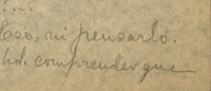 ...
Eso, ni pensarlo.
Ud. comprender que